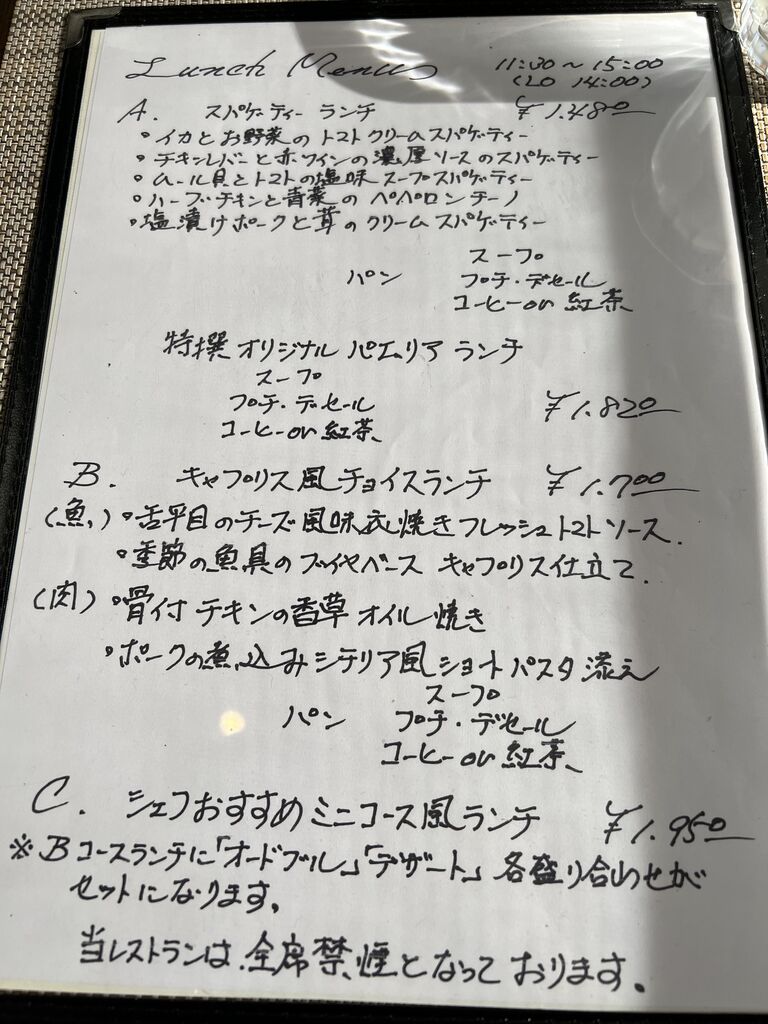 Lunch Menus
11:30～15:00
(LO 14:00)
A. スパゲティー ランチ ¥1.480
・イカとお野菜のトマトクリームスパゲティー
・チキンレバーと赤ワインの濃厚ソースのスパゲティー
・ムール貝とトマトの塩味スープスパゲティー
・ハーブチキンと青菜のペペロンチーノ
・塩漬けポークと茸のクリームスパゲティー
スープ
パン プチ・デセール
コーヒーor紅茶
特撰オリジナル パエリア ランチ
スープ
プチ・デセール ¥1.820
コーヒーor紅茶
B. キャプリス風チョイスランチ ¥1.700
(魚)・舌平目のチーズ風味衣焼きフレッシュトマトソース.
・季節の魚貝のブイヤベース キャプリス仕立て.
(肉)・骨付チキンの香草オイル焼き
・ポークの煮込みシチリア風ショートパスタ添え
スープ
パン プチ・デセール
コーヒーor紅茶
C. シェフおすすめミニコース風ランチ ¥1.950
※Bコースランチに「オードブル」「デザート」各盛り合わせが
セットになります。
当レストランは全席禁煙となっております。